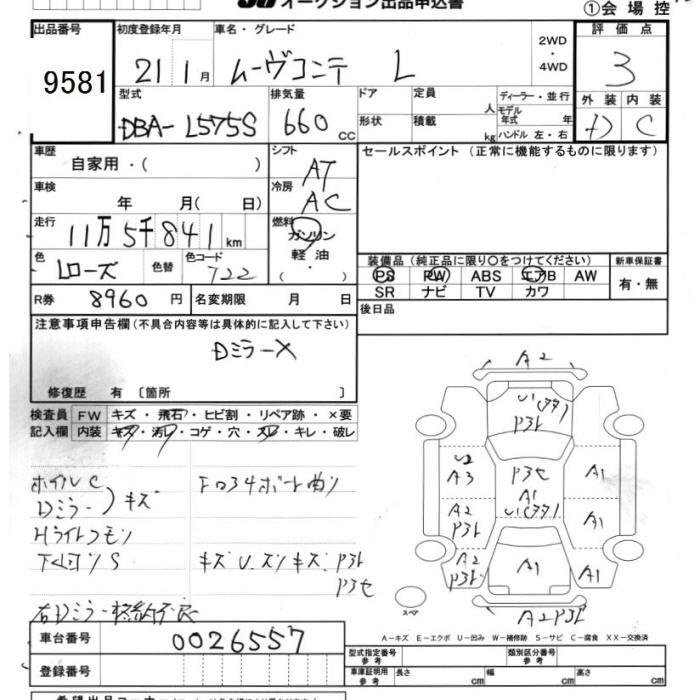 オークション出品申込書
①会場控
出品番号 初度登録年月 車名・グレード 2WD・4WD 評価点
9581 21年1月 ムーヴコンテ L 3
型式 排気量 ドア 定員 人 ディーラー・並行 外装 内装
DBA-L575S 660 cc 形状 積載 kg モデル年式 年 ハンドル 左・右 D C
車歴 自家用・( ) シフト AT セールスポイント (正常に機能するものに限ります)
車検 年 月( 日) 冷房 AC
走行 11万5千841km 燃料 ガソリン
軽油・( )
色 Lローズ 色替 色コード 722 装備品 (純正品に限り○をつけてください) 新車保証書
PS PW ABS エアB AW 有・無
SR ナビ TV カワ
R券 8960円 名変期限 月 日 後日品
注意事項申告欄 (不具合内容等は具体的に記入して下さい)
Dミラー×
修復歴 有 〔箇所 〕
検査員 FW キズ・飛石・ヒビ割・リペア跡・×要
記入欄 内装 キズ・汚レ・コゲ・穴・スレ・キレ・破レ
ホイルC
Dミラー キズ
Hライトクモリ
キズU.ズリキズ P3ヒ
P3セ
右Dミラー格納不良
A2
P3ヒ
U2
A3
P3セ
A1
A1
A2
P3ヒ
A1
A2
P3ヒ
A1
A1
スペア
A2 P3ヒ
A-キズ E-エクボ U-凹み W-補修跡 S-サビ C-腐食 XX-交換済
車台番号 0026557 型式指定番号 参考 類別区分番号 参考
登録番号 車庫証明用 参考 長さ cm 幅 cm 高さ cm